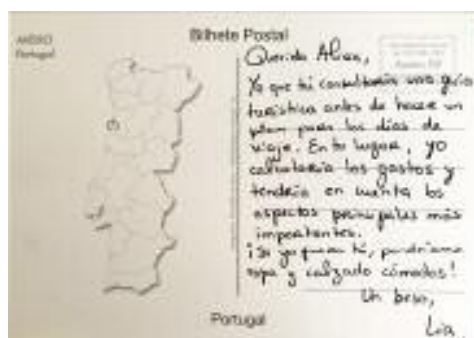 AVEIRO
Portugal
Bilhete Postal
Querida Alicia,
Yo que tú consultaría una guía
turística antes de hacer un
plan para los días de
viaje. En tu lugar, yo
calcularía los gastos y
tendría en cuenta los
aspectos principales más
importantes.
¡Si yo fuera tú, pondría
ropa y calzado cómodos!
Un beso,
Lia
Portugal